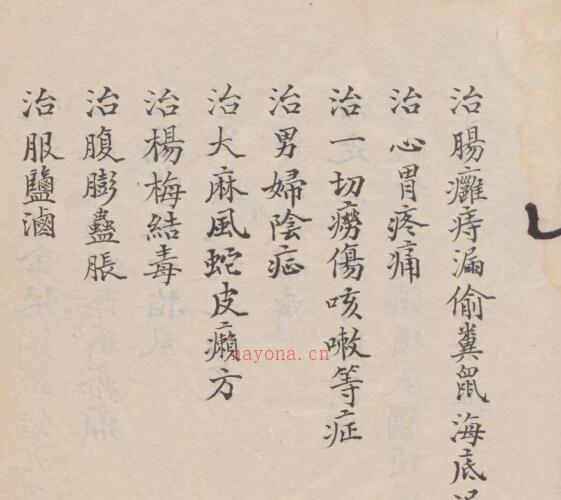 治腸癰痔漏偷糞鼠海底
治心胃疼痛
治一切癆傷咳嗽等症
治男婦陰症
治大麻風蛇皮癩方
治楊梅結毒
治腹膨蠱脹
治服鹽滷
nayona.cn